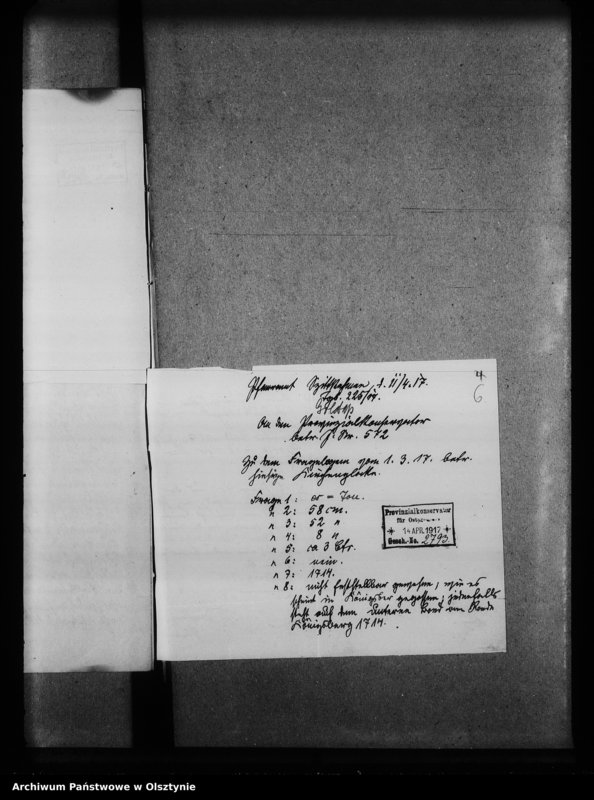 4
6
Pfarramt Szittkehmen, d. 11/4.17.
Tgb. 225/17.
An den Provinzialkonservator
betr. J. Nr. 572
Zu dem Fragebogen vom 1. 3. 17. betr.
hiesige Kirchenglocke.
Frage 1: es = Ton.
" 2: 58 cm.
" 3: 52 "
" 4: 8 "
" 5: ca 3 Ctr.
" 6: nein.
" 7: 1714.
" 8: nicht feststellbar gewesen; wie es
scheint in Königsberg gegossen; jedenfalls
steht auf dem unteren Rande
Königsberg 1714.
Provinzialkonservator
für Ostpreussen
* 14 APR. 1917 *
Gesch.-No. 2793
Archiwum Państwowe w Olsztynie